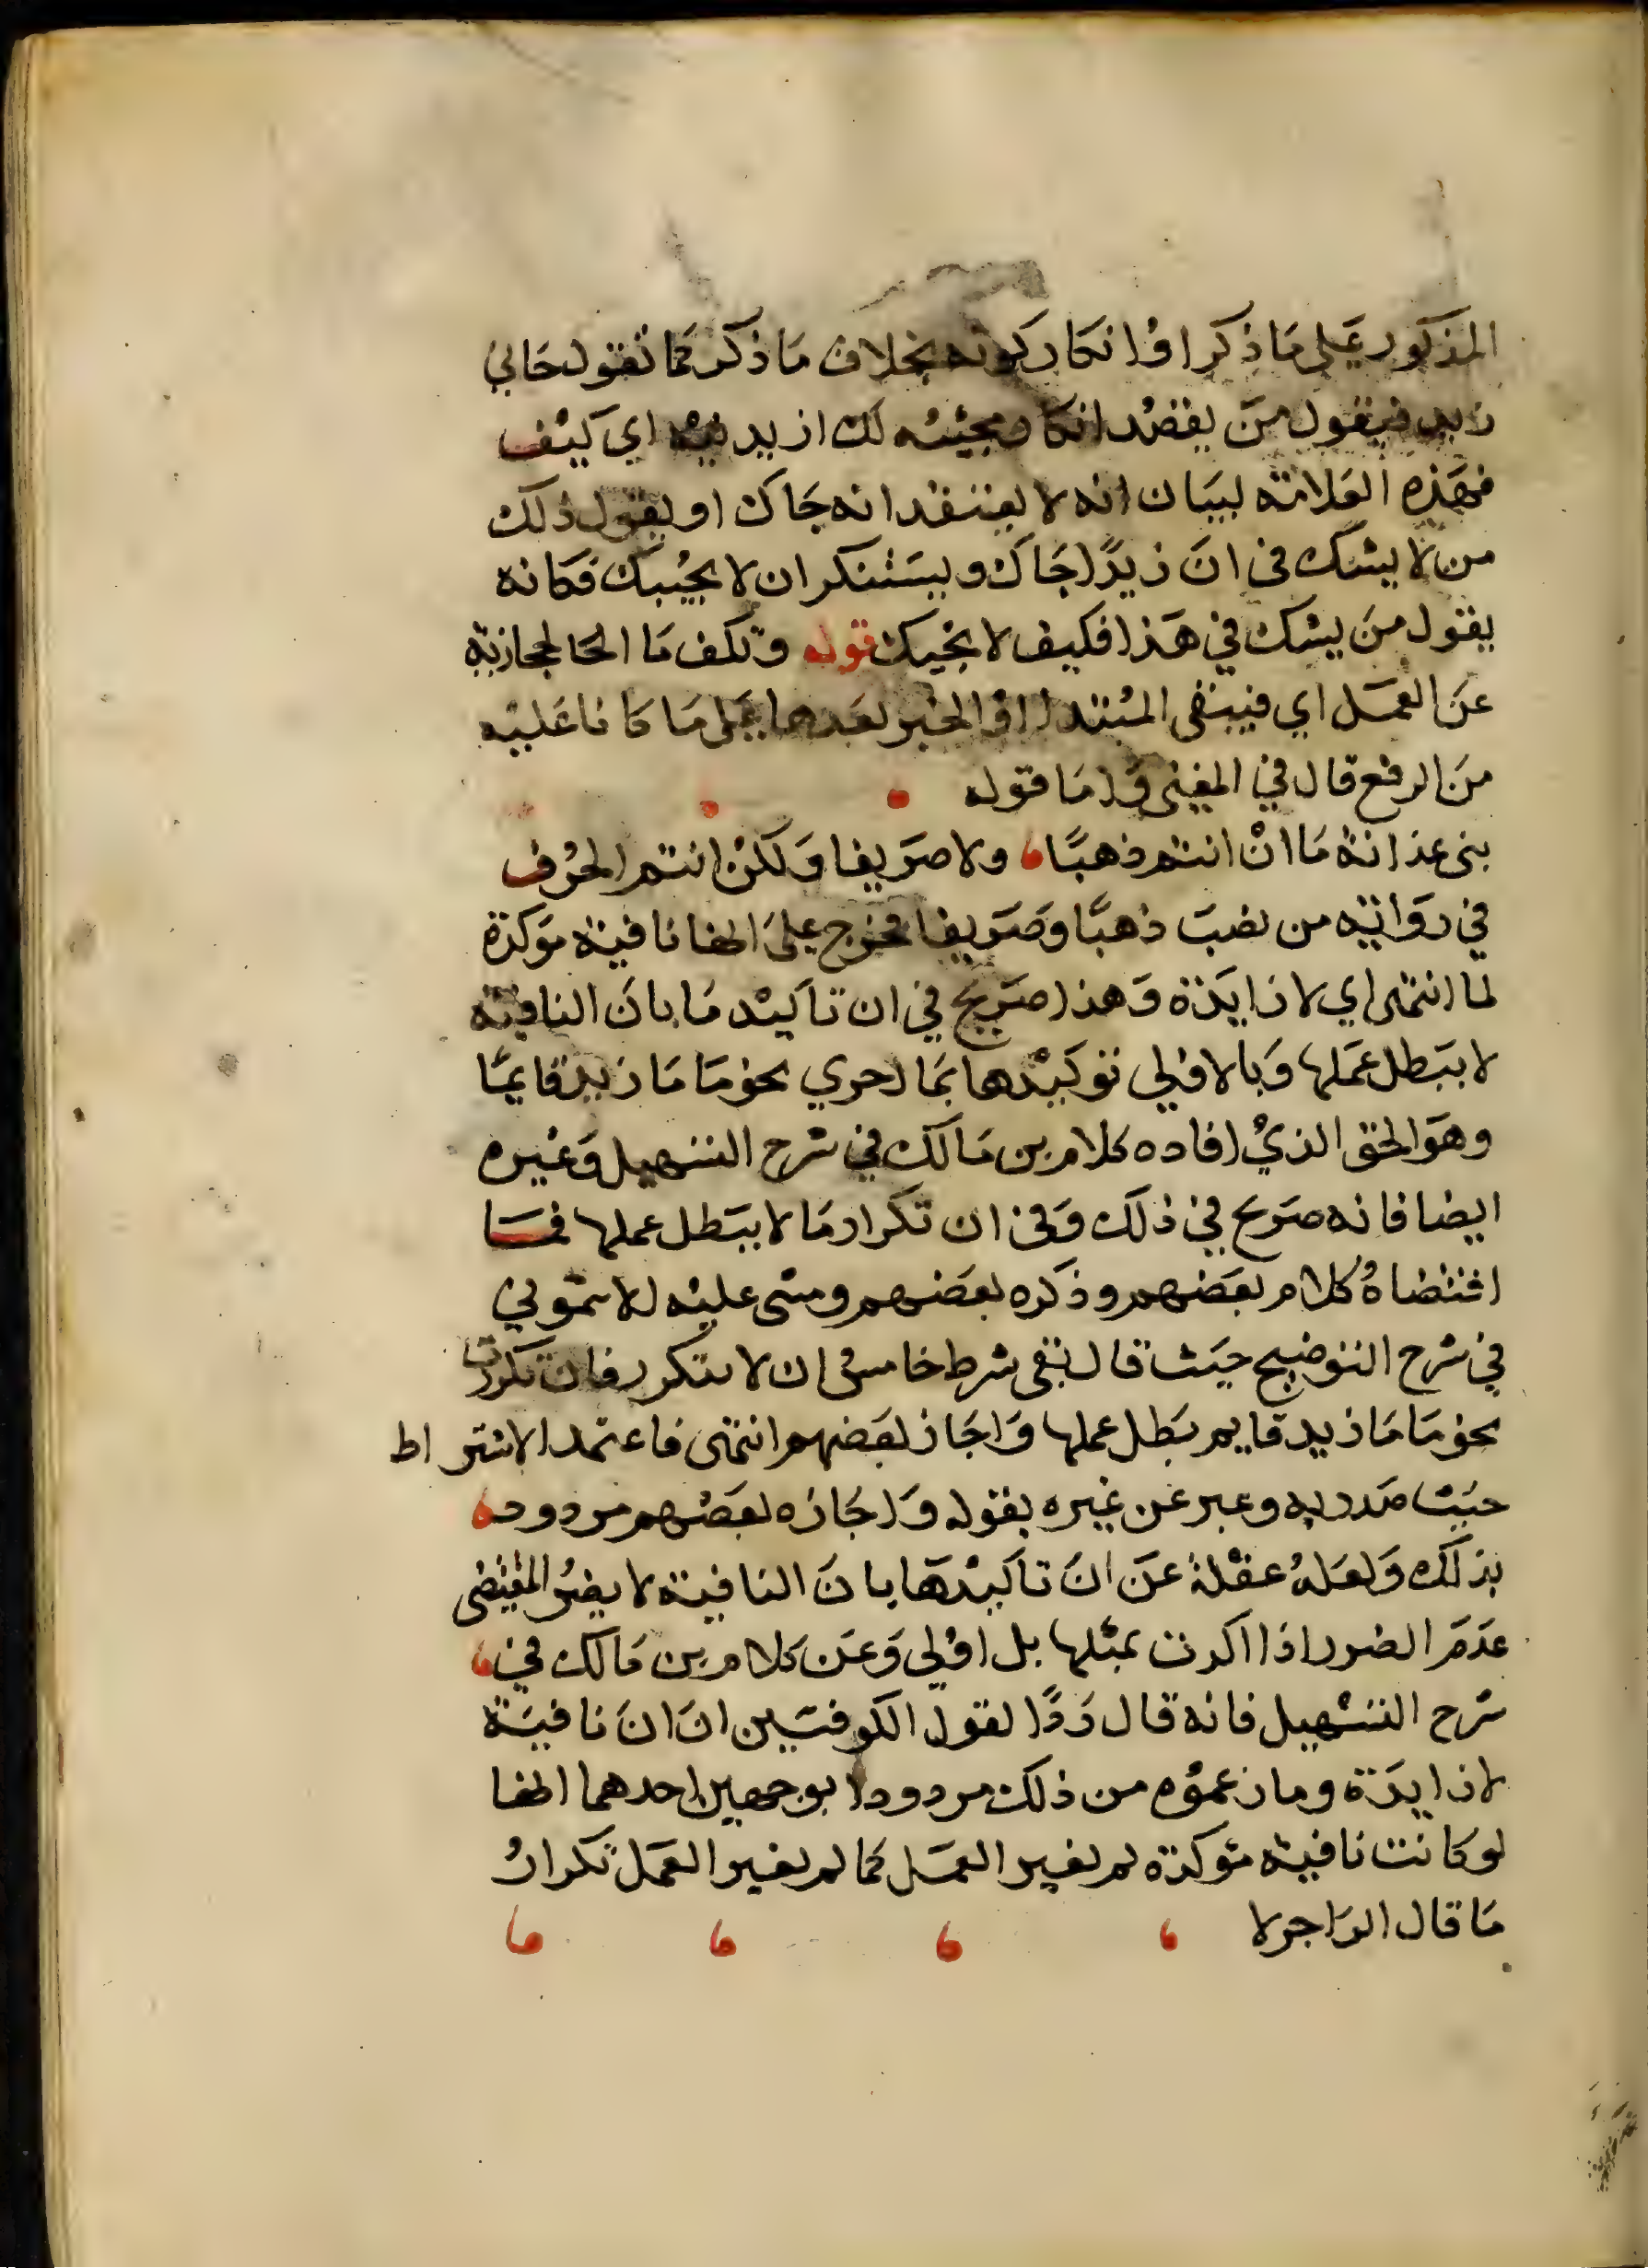 المذكور على ما ذكر او انكار كونه بخلاف ما ذكر كما تقول جاني
زيد فيقول من يقصد انكار مجيئه لك ازيد نيه اي كيف
فهذه العلامة لبيان انه لا يعتقد انه جاك او يقول ذلك
من لا يشك في ان زيدًا جاك ويستنكر ان لا يجيبك فكانه
يقول من يشك في هذا فكيف لا يجيك قوله وتكف ما الحا لحجازية
عن العمل اي فيبقى المبتدا او الخبر بعدها على ما كانا عليه
من الرفع قال في المغني واما قوله
بنى غدانة ما انْ انتم ذهبًا ولا صريفا ولكن انتم الخرف
في رواية من نصب ذهبًا وصريفا فخرج على انها نافية موكدة
لما انتهى اي لا زايدة وهذا صريح في ان تاكيد ما بان النافية
لا يبطل عملها وبالاولى توكيدها بما احري نحو ما ما زيد قايمًا
وهو الحق الذي افاده كلام بن مالك في شرح التسهيل وغيره
ايضا فانه صريح في ذلك وفي ان تكرار ما لا يبطل عملها فما
اقتضاهُ كلام بعضهم وذكره بعضهم ومشى عليه الاشموني
في شرح التوضيح حيث قال بقى شرط خامس ان لا تتكرر فان تكررت
نحو ما ما زيد قايم بطل عملها واجاز بعضهم انتهى فاعتمد الاشتراط
حيث صدر به وعبر عن غيره بقوله واجازه بعضهم مردود
بذلك ولعله غفلة عن ان تاكيدها بان النافية لا يضر المقتضى
عدم الضرر اذا اكدت بمثلها بل اولى وعن كلام بن مالك في
شرح التسهيل فانه قال ردًّا لقول الكوفيين ان ان نافية
لا زايدة وما زعموه من ذلك مردودا بوجهين احدهما انها
لو كانت نافية موكدة لم يغير العمل كما لم يغير العمل تكرار
ما قال الراجز لا